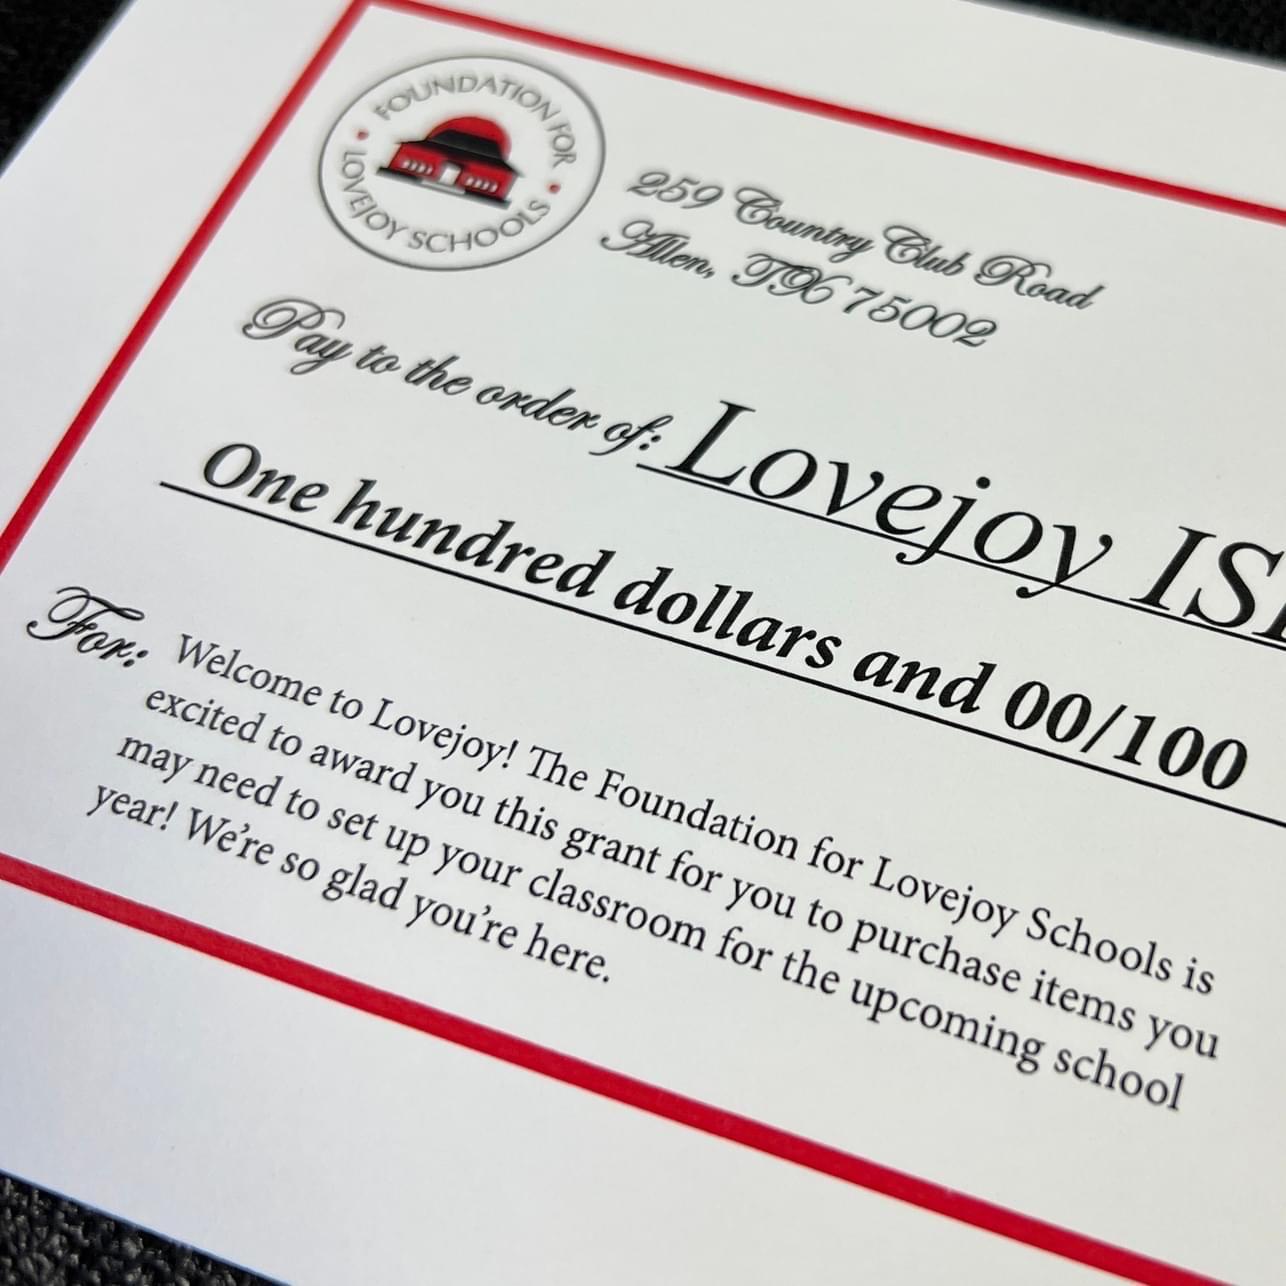 FOUNDATION FOR
LOVEJOY SCHOOLS
259 Country Club Road
Allen, TX 75002
Pay to the order of: Lovejoy
One hundred dollars and 00/100
For: Welcome to Lovejoy! The Foundation for Lovejoy Schools is
excited to award you this grant for you to purchase items you
may need to set up your classroom for the upcoming school
year! We're so glad you're here.